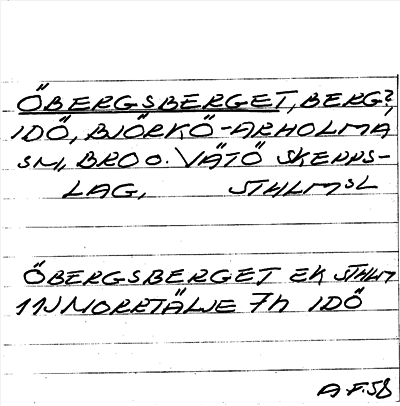 ÖBERGSBERGET, BERG?,
IDÖ, BJÖRKÖ-ARHOLMA
SN, BRO O. VÄTÖ SKEPPS-
LAG, STHLMSL
ÖBERGSBERGET EK STHLM
11J NORRTÄLJE 7h IDÖ
A.F. 58